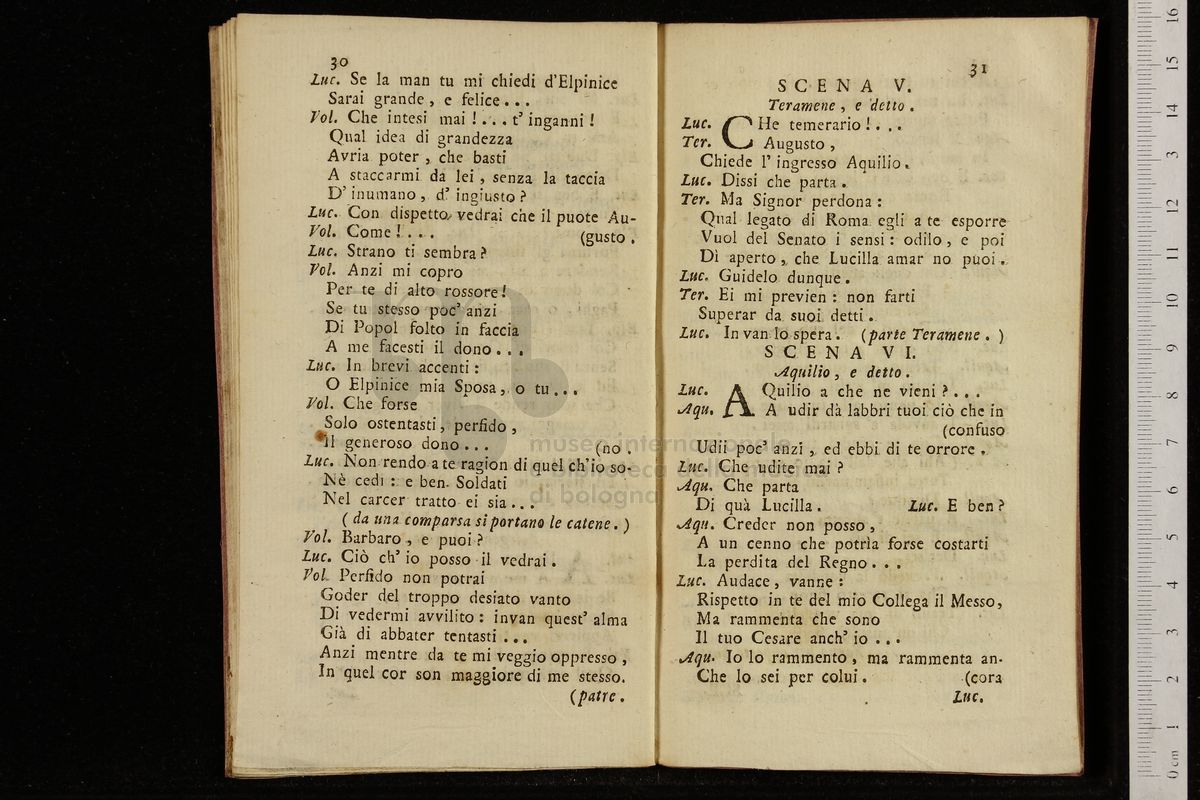 30
Luc. Se la man tu mi chiedi d'Elpinice
Sarai grande, e felice...
Vol. Che intesi mai!... t' inganni!
Qual idea di grandezza
Avria poter, che basti
A staccarmi da lei, senza la taccia
D' inumano, d' ingiusto?
Luc. Con dispetto vedrai che il puote Au-
Vol. Come!... (gusto.
Luc. Strano ti sembra?
Vol. Anzi mi copro
Per te di alto rossore!
Se tu stesso poc' anzi
Di Popol folto in faccia
A me facesti il dono...
Luc. In brevi accenti:
O Elpinice mia Sposa, o tu...
Vol. Che forse
Solo ostentasti, perfido,
Il generoso dono... (no.
Luc. Non rendo a te ragion di quel ch' io so-
Nè cedi: e ben. Soldati
Nel carcer tratto ei sia...
(da una comparsa si portano le catene.)
Vol. Barbaro, e puoi?
Luc. Ciò ch' io posso il vedrai.
Vol. Perfido non potrai
Goder del troppo desiato vanto
Di vedermi avvilito: invan quest' alma
Già di abbater tentasti...
Anzi mentre da te mi veggio oppresso,
In quel cor son maggiore di me stesso.
(patre.
31
SCENA V.
Teramene, e detto.
Luc. CHe temerario!...
Ter. Augusto,
Chiede l' ingresso Aquilio.
Luc. Dissi che parta.
Ter. Ma Signor perdona:
Qual legato di Roma egli a te esporre
Vuol del Senato i sensi: odilo, e poi
Dì aperto, che Lucilla amar no puoi.
Luc. Guidelo dunque.
Ter. Ei mi previen: non farti
Superar da suoi detti.
Luc. In van lo spera. (parte Teramene.)
SCENA VI.
Aquilio, e detto.
Luc. AQuilio a che ne vieni?...
Aqu. A udir dà labbri tuoi ciò che in
(confuso
Udii poc' anzi, ed ebbi di te orrore.
Luc. Che udite mai?
Aqu. Che parta
Di quà Lucilla. Luc. E ben?
Aqu. Creder non posso,
A un cenno che potrìa forse costarti
La perdita del Regno...
Luc. Audace, vanne:
Rispetto in te del mio Collega il Messo,
Ma rammenta che sono
Il tuo Cesare anch' io...
Aqu. Io lo rammento, ma rammenta an-
Che lo sei per colui. (cora
Luc.
museo internazionale
biblioteca della musica
di bologna
0 cm 1 2 3 4 5 6 7 8 9 10 11 12 13 14 15 16